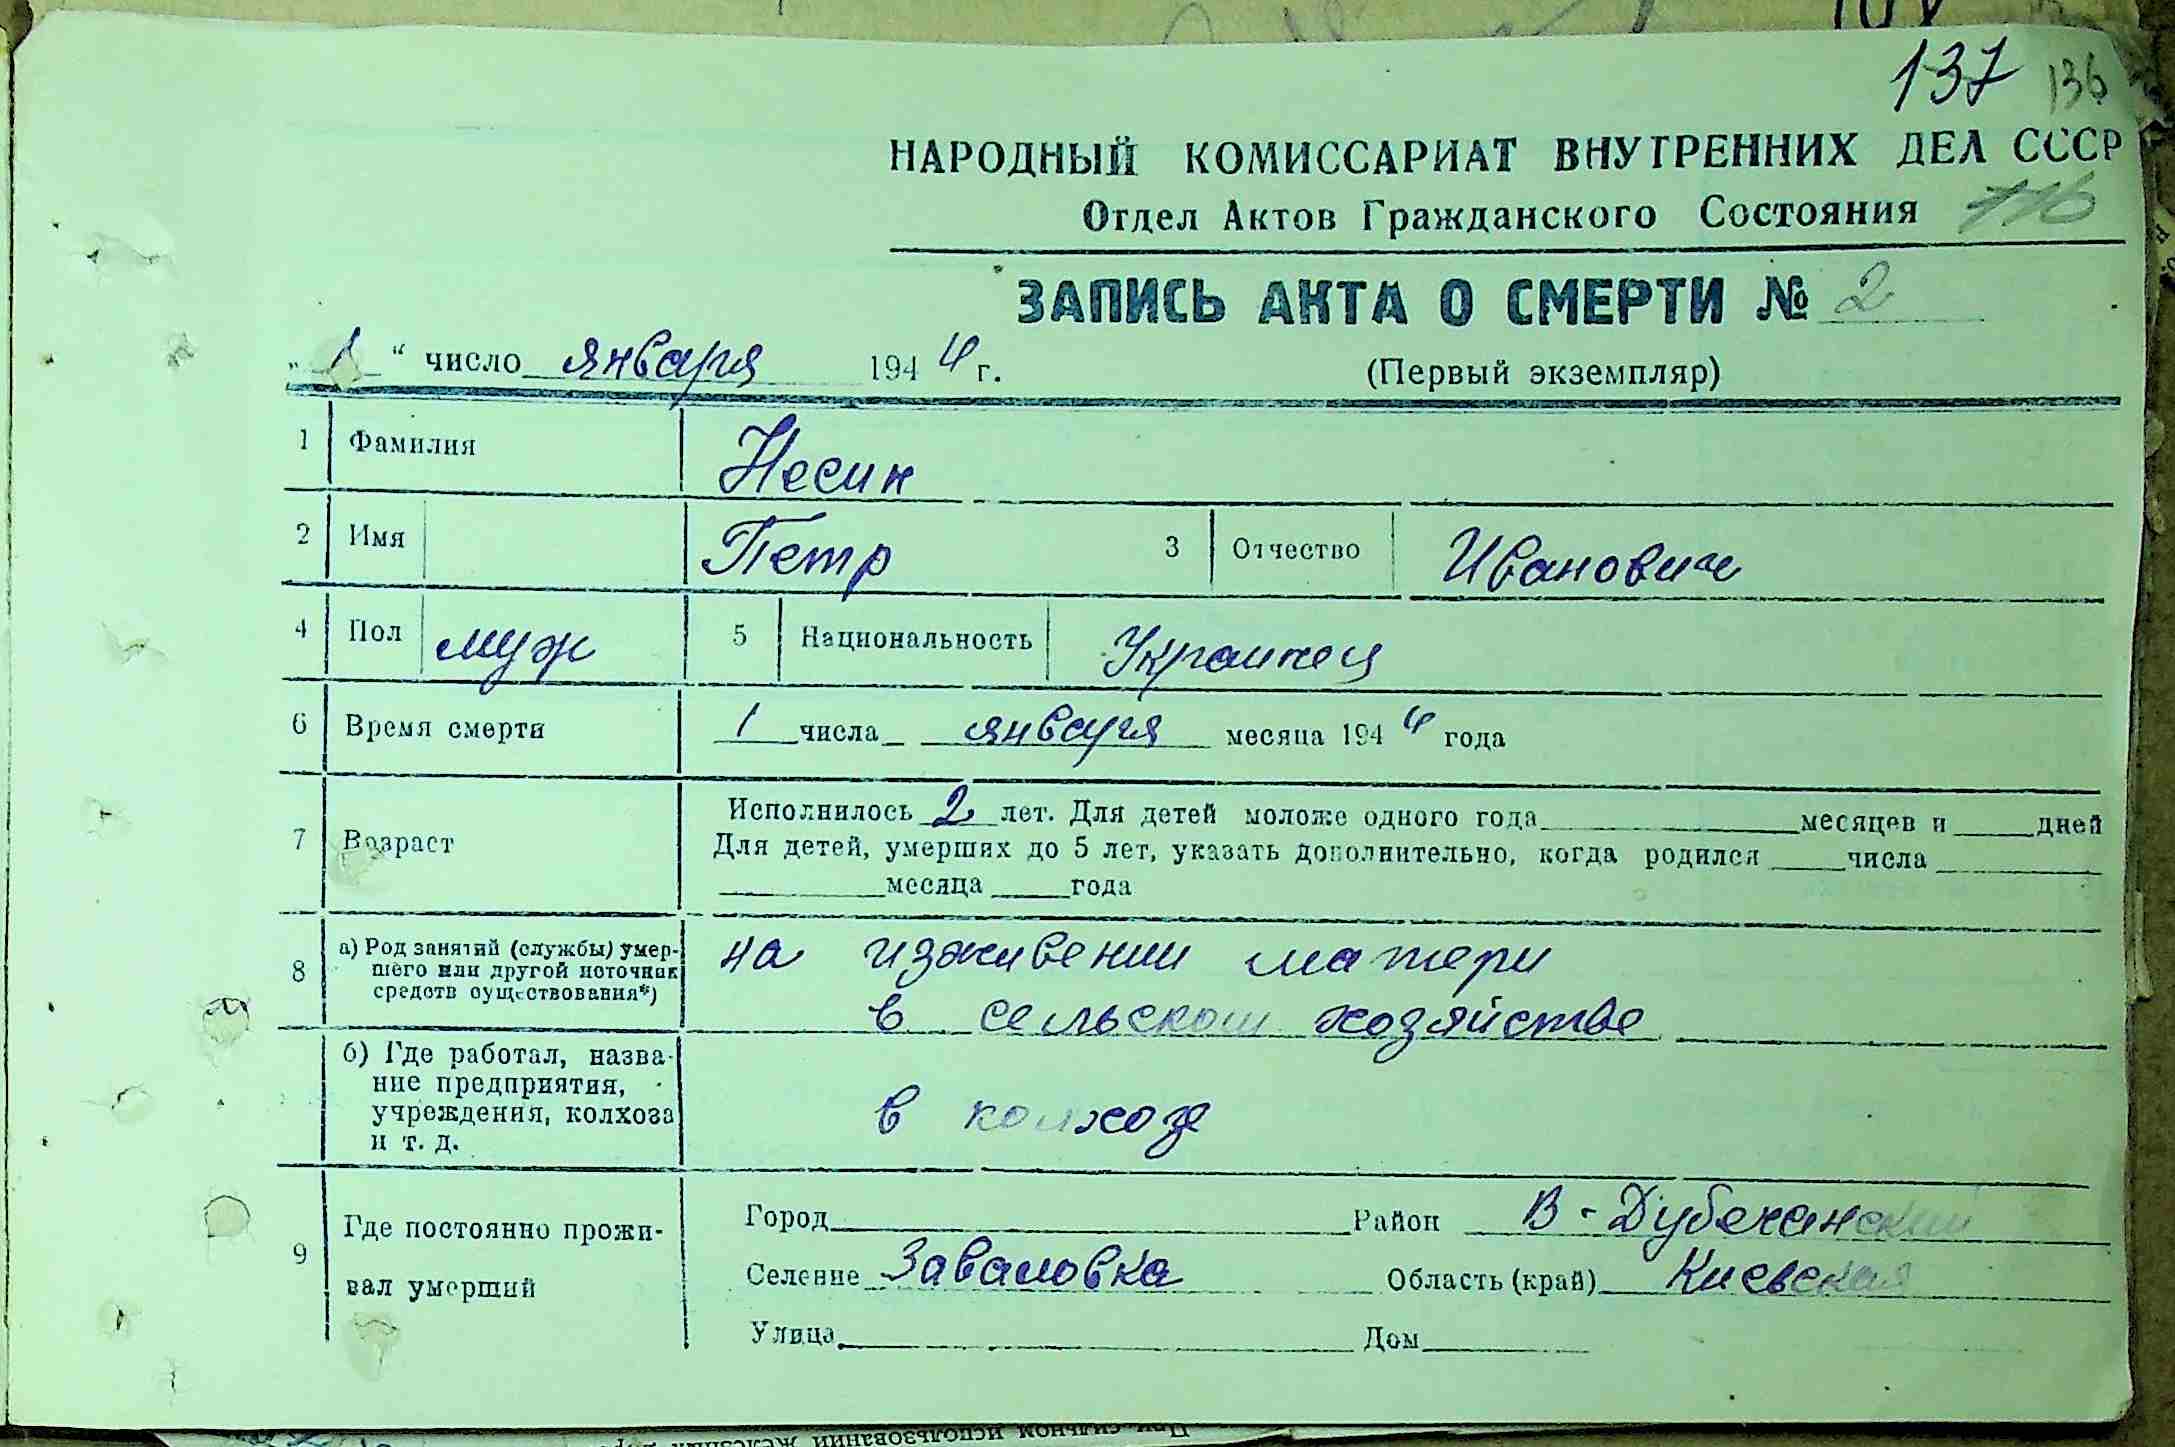 137 136
НАРОДНЫЙ КОМИССАРИАТ ВНУТРЕННИХ ДЕЛ СССР
Отдел Актов Гражданского Состояния 116
ЗАПИСЬ АКТА О СМЕРТИ № 2
„ 1 “ число января 1944 г.
(Первый экземпляр)
1 Фамилия Несин
2 Имя Петр 3 Отчество Иванович
4 Пол муж 5 Национальность Украинец
6 Время смерти 1 числа января месяца 1944 года
7 Возраст
Исполнилось 2 лет. Для детей моложе одного года месяцев и дней
Для детей, умерших до 5 лет, указать дополнительно, когда родился числа
месяца года
8 а) Род занятий (службы) умер-
шего или другой источник
средств существования*)
на иживении матери
в сельском хозяйстве
б) Где работал, назва-
ние предприятия,
учреждения, колхоза
и т. д.
в колхозе
9 Где постоянно прожи-
вал умерший
Город Район В-Дубечанский
Селение Заваловка Область (край) Киевская
Улица Дом